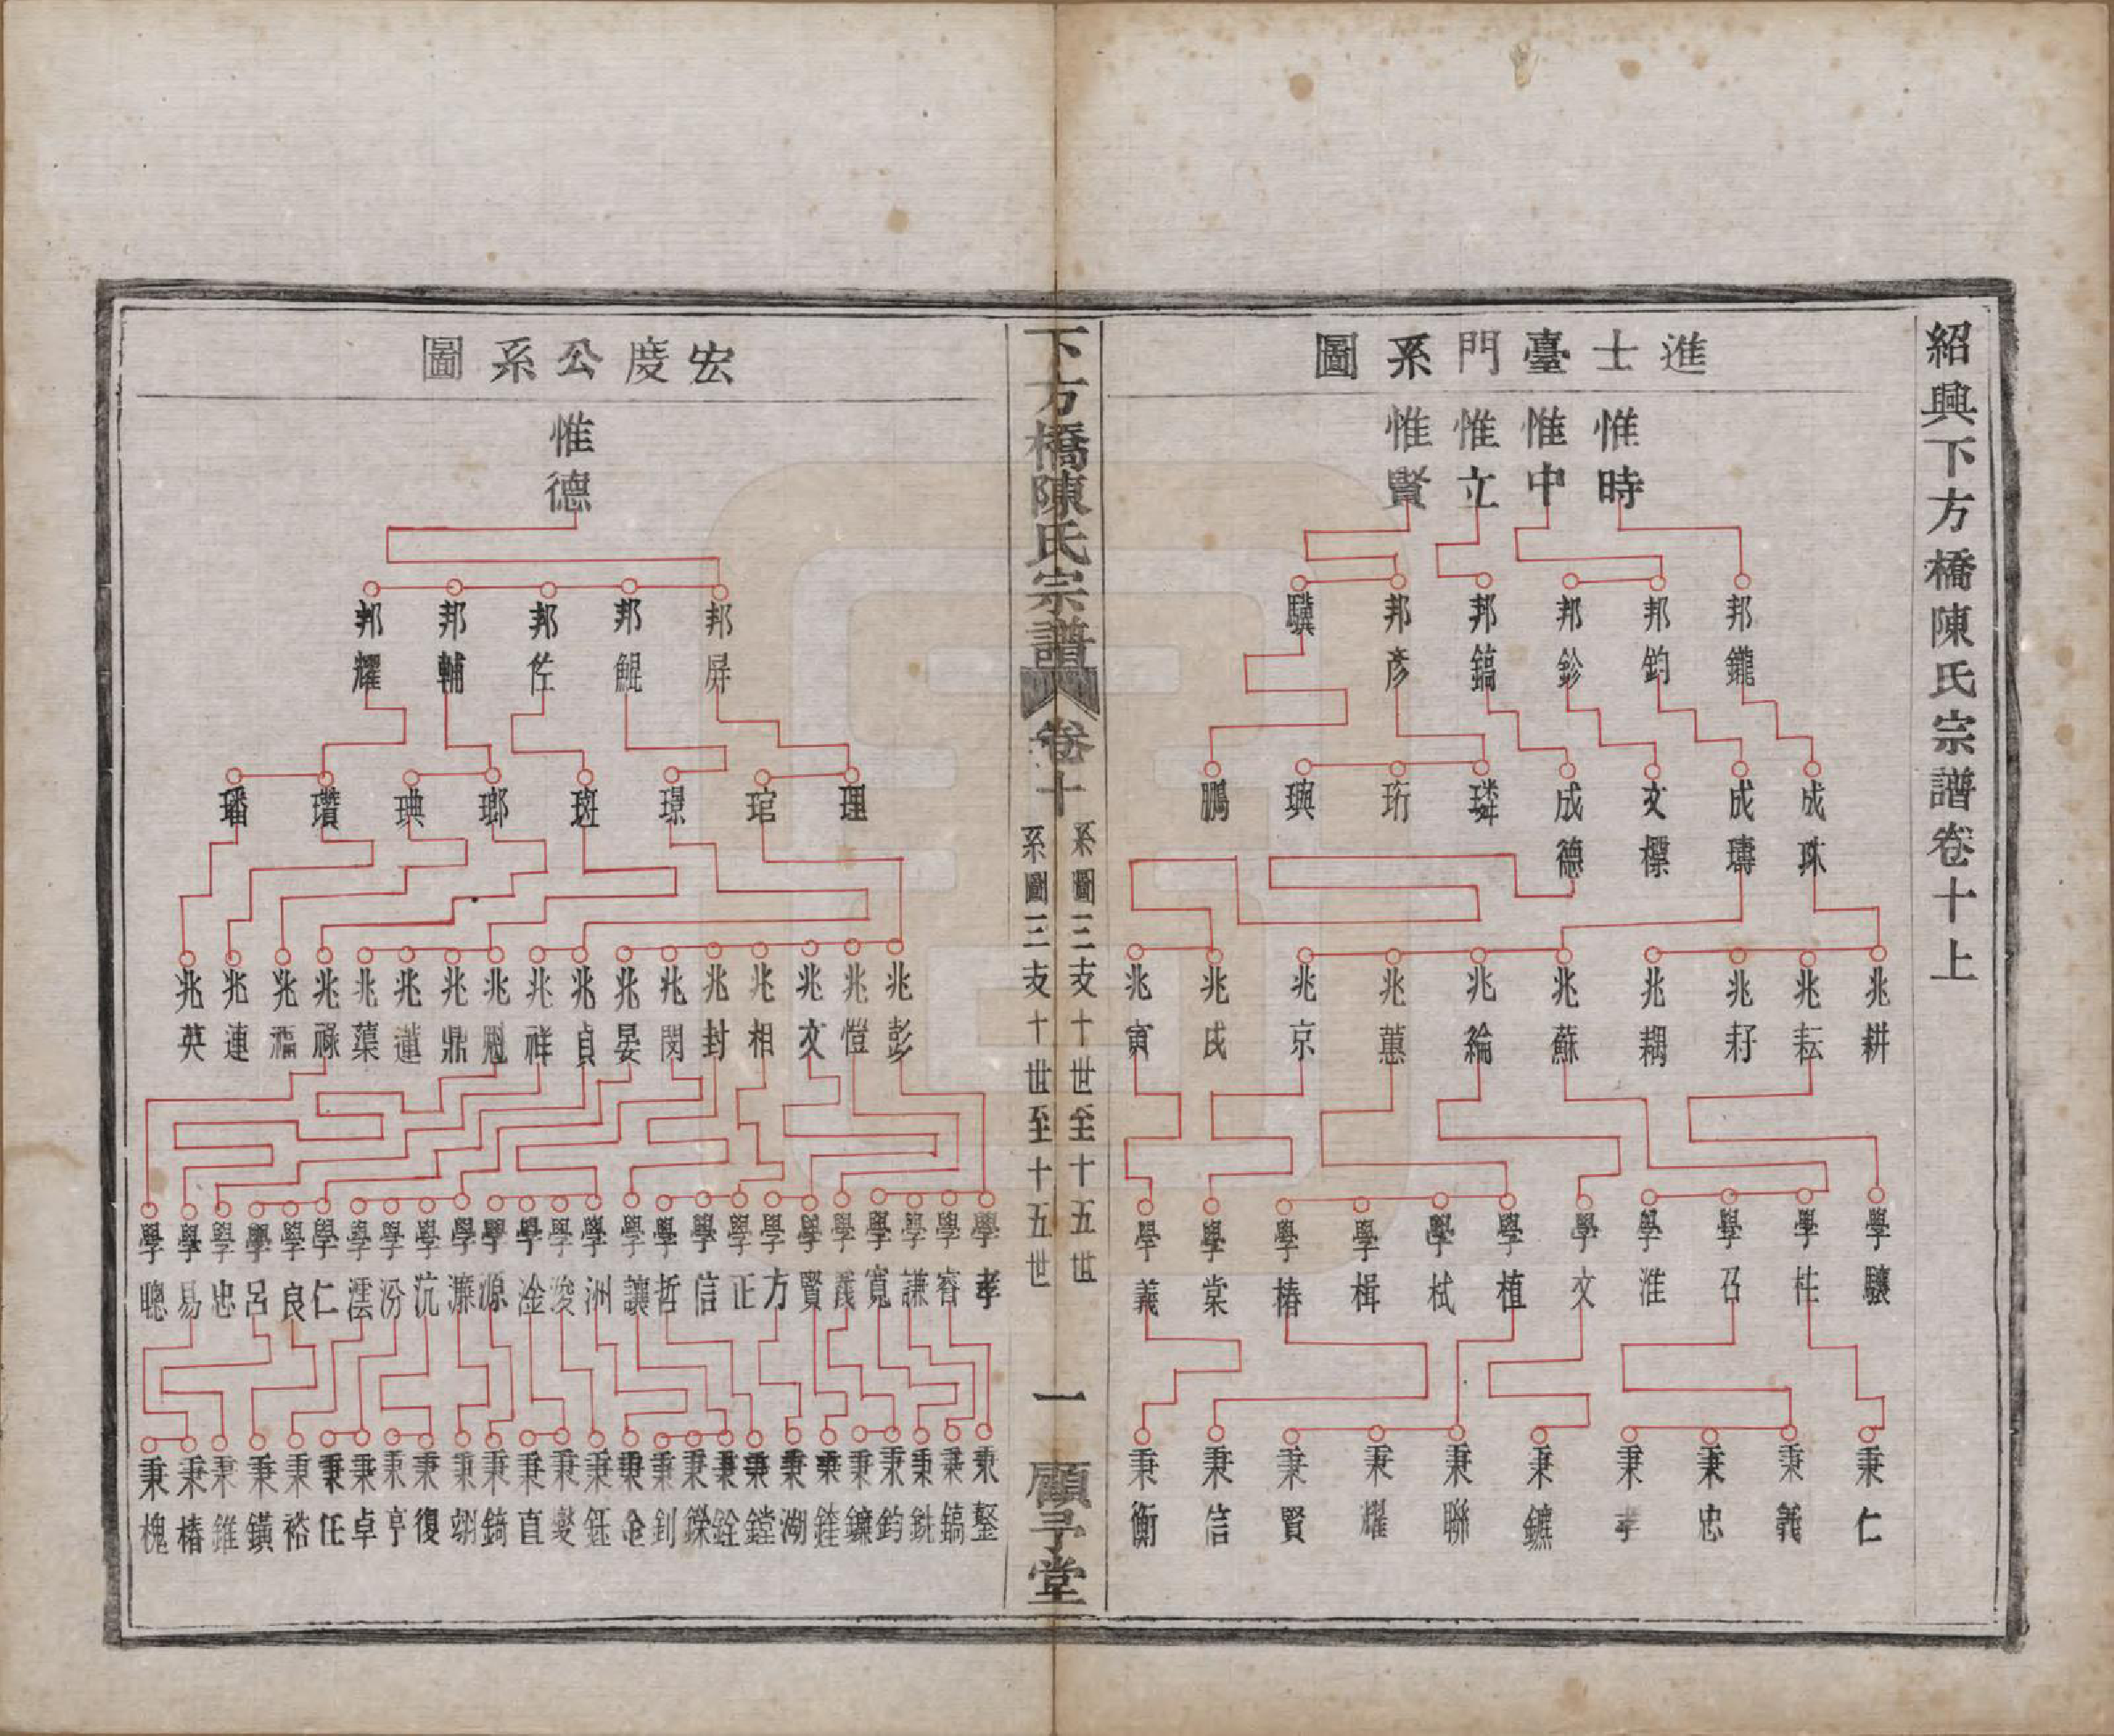 紹興下方橋陳氏宗譜卷十上
進士臺門系圖
惟時 惟中 惟立 惟賢
邦鑨 邦鈞 邦鉁 邦鎬 邦彥 驥
成珠 成璹 文標 成德 璘 珩 璵 鵬
兆耕 兆耘 兆耔 兆耦 兆蘇 兆綸 兆蕙 兆京 兆戌 兆寅
學驤 學柱 學召 學淮 學文 學植 學栻 學楫 學椿 學棠 學義
秉仁 秉義 秉忠 秉孝 秉鑣 秉聯 秉耀 秉賢 秉信 秉衡
下方橋陳氏宗譜 卷十 系圖三支十世至十五世 系圖三支十世至十五世 一 願學堂
宏度公系圖
惟德
邦屏 邦鯤 邦佐 邦輔 邦耀
理 琯 璟 斑 瑯 琠 瓚 璠
兆彭 兆愷 兆文 兆相 兆封 兆閔 兆晏 兆貞 兆祥 兆魁 兆鼎 兆蓮 兆蕖 兆祿 兆福 兆連 兆英
學孝 學睿 學謙 學寬 學義 學賢 學方 學正 學信 學哲 學讓 學洲 學浚 學淦 學源 學濂 學沆 學汾 學澐 學仁 學良 學呂 學忠 學易 學聰
秉鏊 秉鎬 秉銑 秉鈞 秉鑣 秉錴 秉湖 秉鏜 秉銓 秉鑅 秉釗 秉全 秉鈺 秉燮 秉直 秉錡 秉翊 秉復 秉亨 秉卓 秉任 秉裕 秉鐄 秉錐 秉椿 秉槐